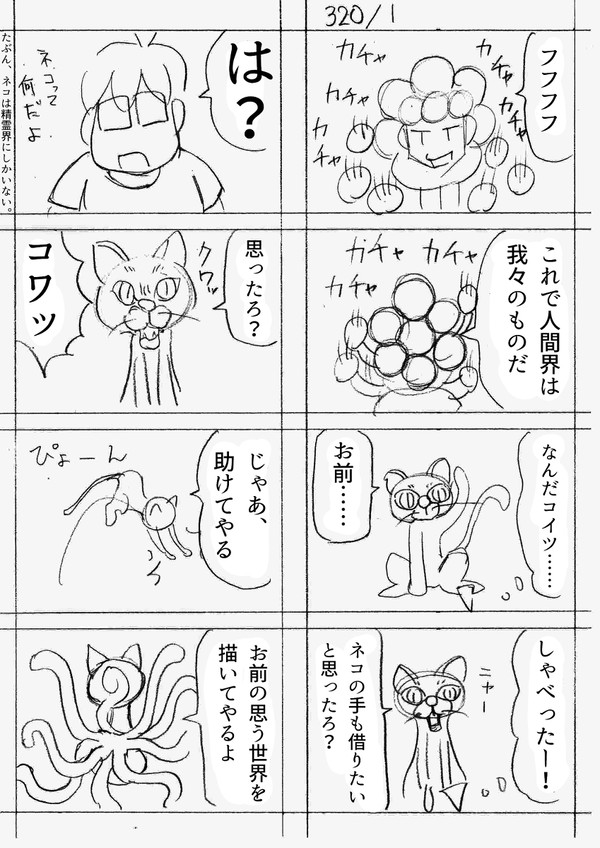 320/1
フフフフ
カチャ
カチャ
カチャ
カチャ
カチャ
これで人間界は
我々のものだ
ガチャ
カチャ
カチャ
なんだコイツ……
お前……
しゃべったー！
ニャー
ネコの手も借りたい
と思ったろ？
は？
ネコって
何だよ
たぶん、ネコは精霊界にしかいない。
思ったろ？
クワッ
コワッ
じゃあ、
助けてやる
ぴょーん
お前の思う世界を
描いてやるよ